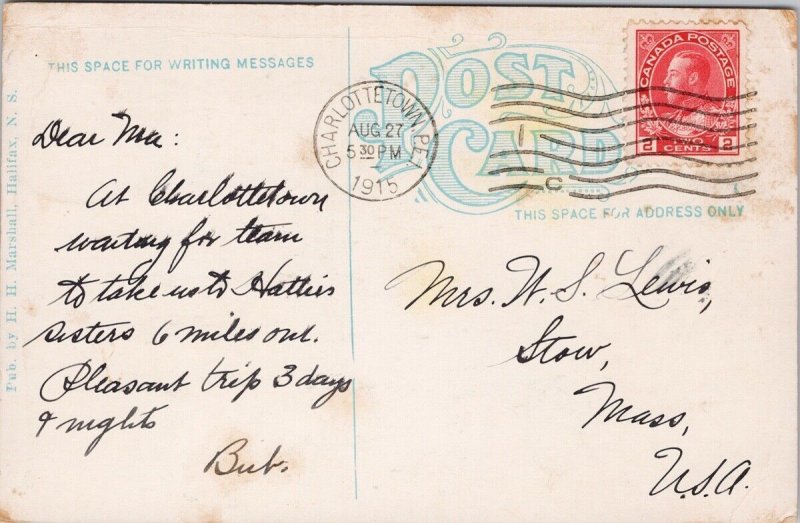 THIS SPACE FOR WRITING MESSAGES
POST CARD
THIS SPACE FOR ADDRESS ONLY
Pub. by H. H. Marshall, Halifax, N. S.
CANADA POSTAGE
2 TWO CENTS 2
CHARLOTTETOWN, P.E.I.
AUG 27
5 30 PM
1915
1
C
Dear Ma:
At Charlottetown
waiting for team
to take us to Hatties
sisters 6 miles out.
Pleasant trip 3 days
& nights
Bub.
Mrs. W. S. Lewis,
Stow,
Mass,
U.S.A.